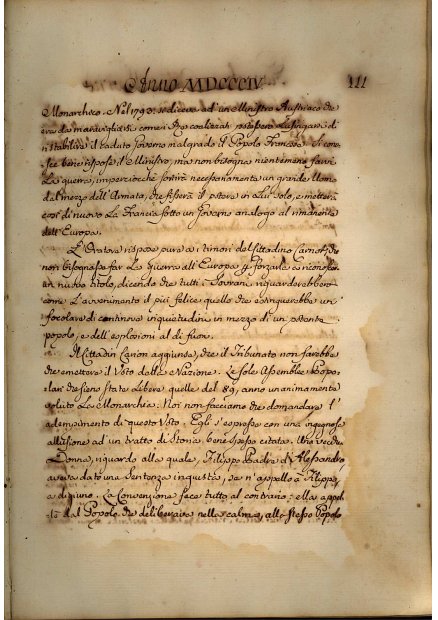 Anno MDCCCIV. 111
Monarcheco. Nel 1793. si diceva ad un Ministro Austriaco che
era da maravigliarsi come i Re coalizzati potessero lusingarsi di
ristabilire il caduto Governo malgrado il Popolo Francese. Si cono-
sce bene rispose il Ministro, ma non bisogna nientemeno farvi
la guerra, imperciocchè sortirà necessariamente un grande Uomo
dal mezzo dell'Armata, che fisserà il potere in lui solo, e metterà
così di nuovo la Francia sotto un Governo analogo al rimanente
dell'Europa.
L'Oratore rispose pure a i timori del Cittadino Carnot, che
non bisognasse far la guerra all'Europa p forzarla a riconoscer
un nuovo titolo, dicendo che tutti i Sovrani riguarderebbero
come l'avvenimento il più felice, quello che estinguerebbe un
focolare di continue inquietudini in mezzo di un potente
popolo, e dell'esplosioni al di fuori.
Il Cittadin Carion aggiunse, che il Tribunato non farebbe
che emettere il Voto della Nazione. Le sole Assemblee Popo-
lari che sieno state libere, quelle del 89, anno unanimamente
voluto la Monarchia. Noi non facciamo che domandare l'
adempimento di questo Voto. Egli s'espresse con una ingegnosa
allusione ad un tratto di Storia bene spesso citata. Una vecchia
Donna, riguardo alla quale, Filippo Padre di Alessandro,
aveva dato una Sentenza ingiusta, se n'appellò a Filippo
a digiuno. La Convenzione fece tutto al contrario: ella appel-
lò dal Popolo che deliberava nella calma, allo stesso Popolo